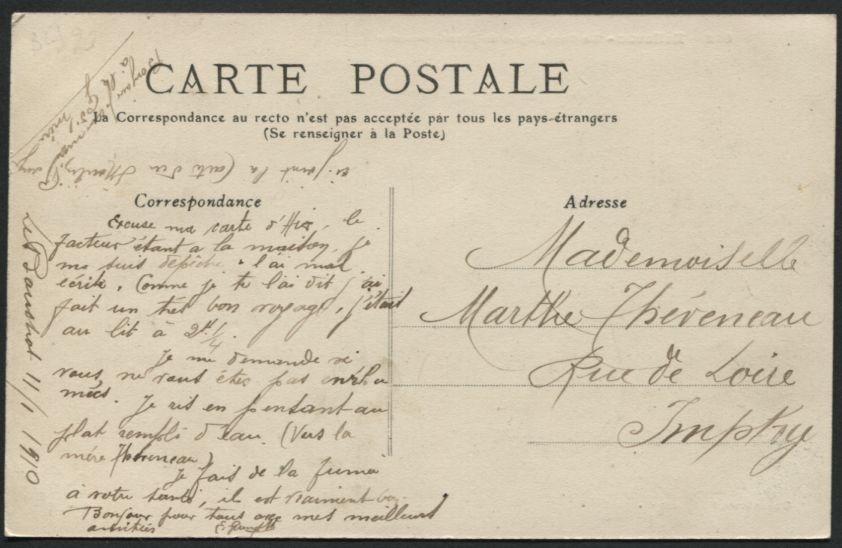 CARTE POSTALE
La Correspondance au recto n'est pas acceptée par tous les pays-étrangers
(Se renseigner à la Poste)
ci joint la Carte
Correspondance
Excuse ma carte d'Hier, le
facteur étant a la maison, je
me suis dépêché & l'ai mal
ecrite. Comme je te l'ai dit j'ai
fait un très bon voyage, j'étais
au lit à 2H 1/4.
Je me demande si
vous, ne vous étes pas enrhu
mées. Je ris en pensant au
plat rempli d'eau. (Vers la
mére Théveneau)
Je fais de la fumée
à votre santé, il est vraiment bon.
Bonjour pour tous avec mes meilleurs
amitiés
11/1 1910
Adresse
Mademoiselle
Marthe Théveneau
Rue de Loire
Imphy